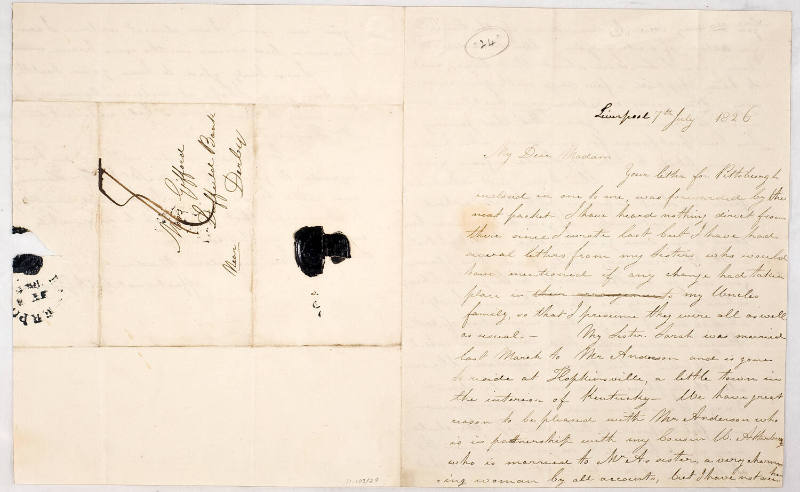 "24"
Liverpool 7th July 1826
My Dear Madam
Your letter for Pittsburgh
enclosed in one to me, was forwarded by the
next packet I have heard nothing direct from
there since I wrote last, but I have had
several letters from my Sisters who would
have mentioned if any change had taken
place in their arrangements my Uncles
family, so that I presume they were all as well
as usual. — My Sister Sarah was married
last March to Mr Anderson and is gone
to reside at Hopkinsville, a little town in
the interior of Kentucky — We have great
reason to be pleased with Mr Anderson who
is in partnership with my Cousin W. Atterbury
who is married to Mr As sister, a very charm
ing woman by all accounts, but I have not seen
Miss Gifford
Duffield Bank
Near Derby